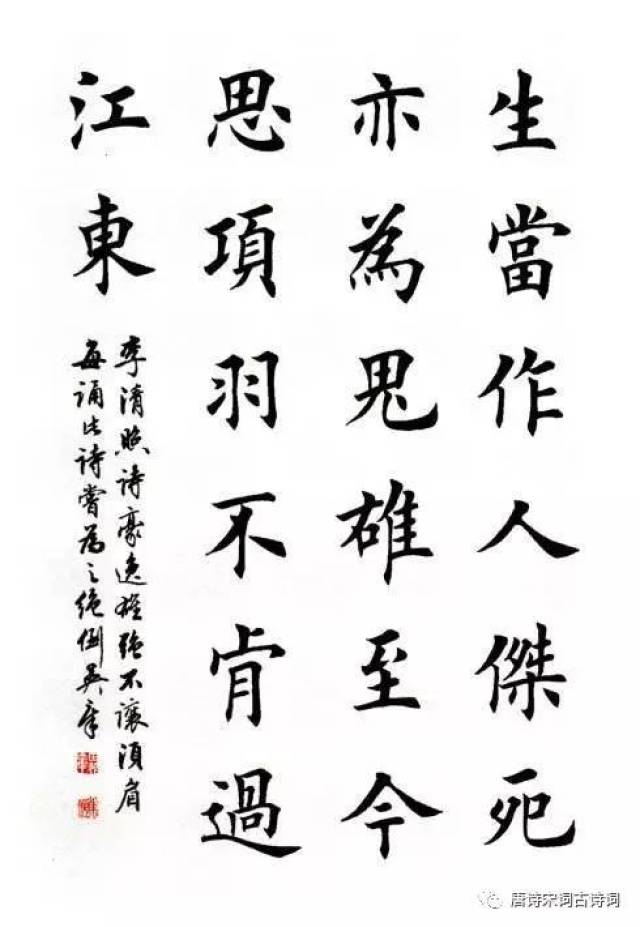 生當作人傑死
亦為鬼雄至今
思項羽不肯過
江東
李清照诗豪逸雄强不讓须眉
每诵此诗嘗為之绝倒
唐诗宋词古诗词